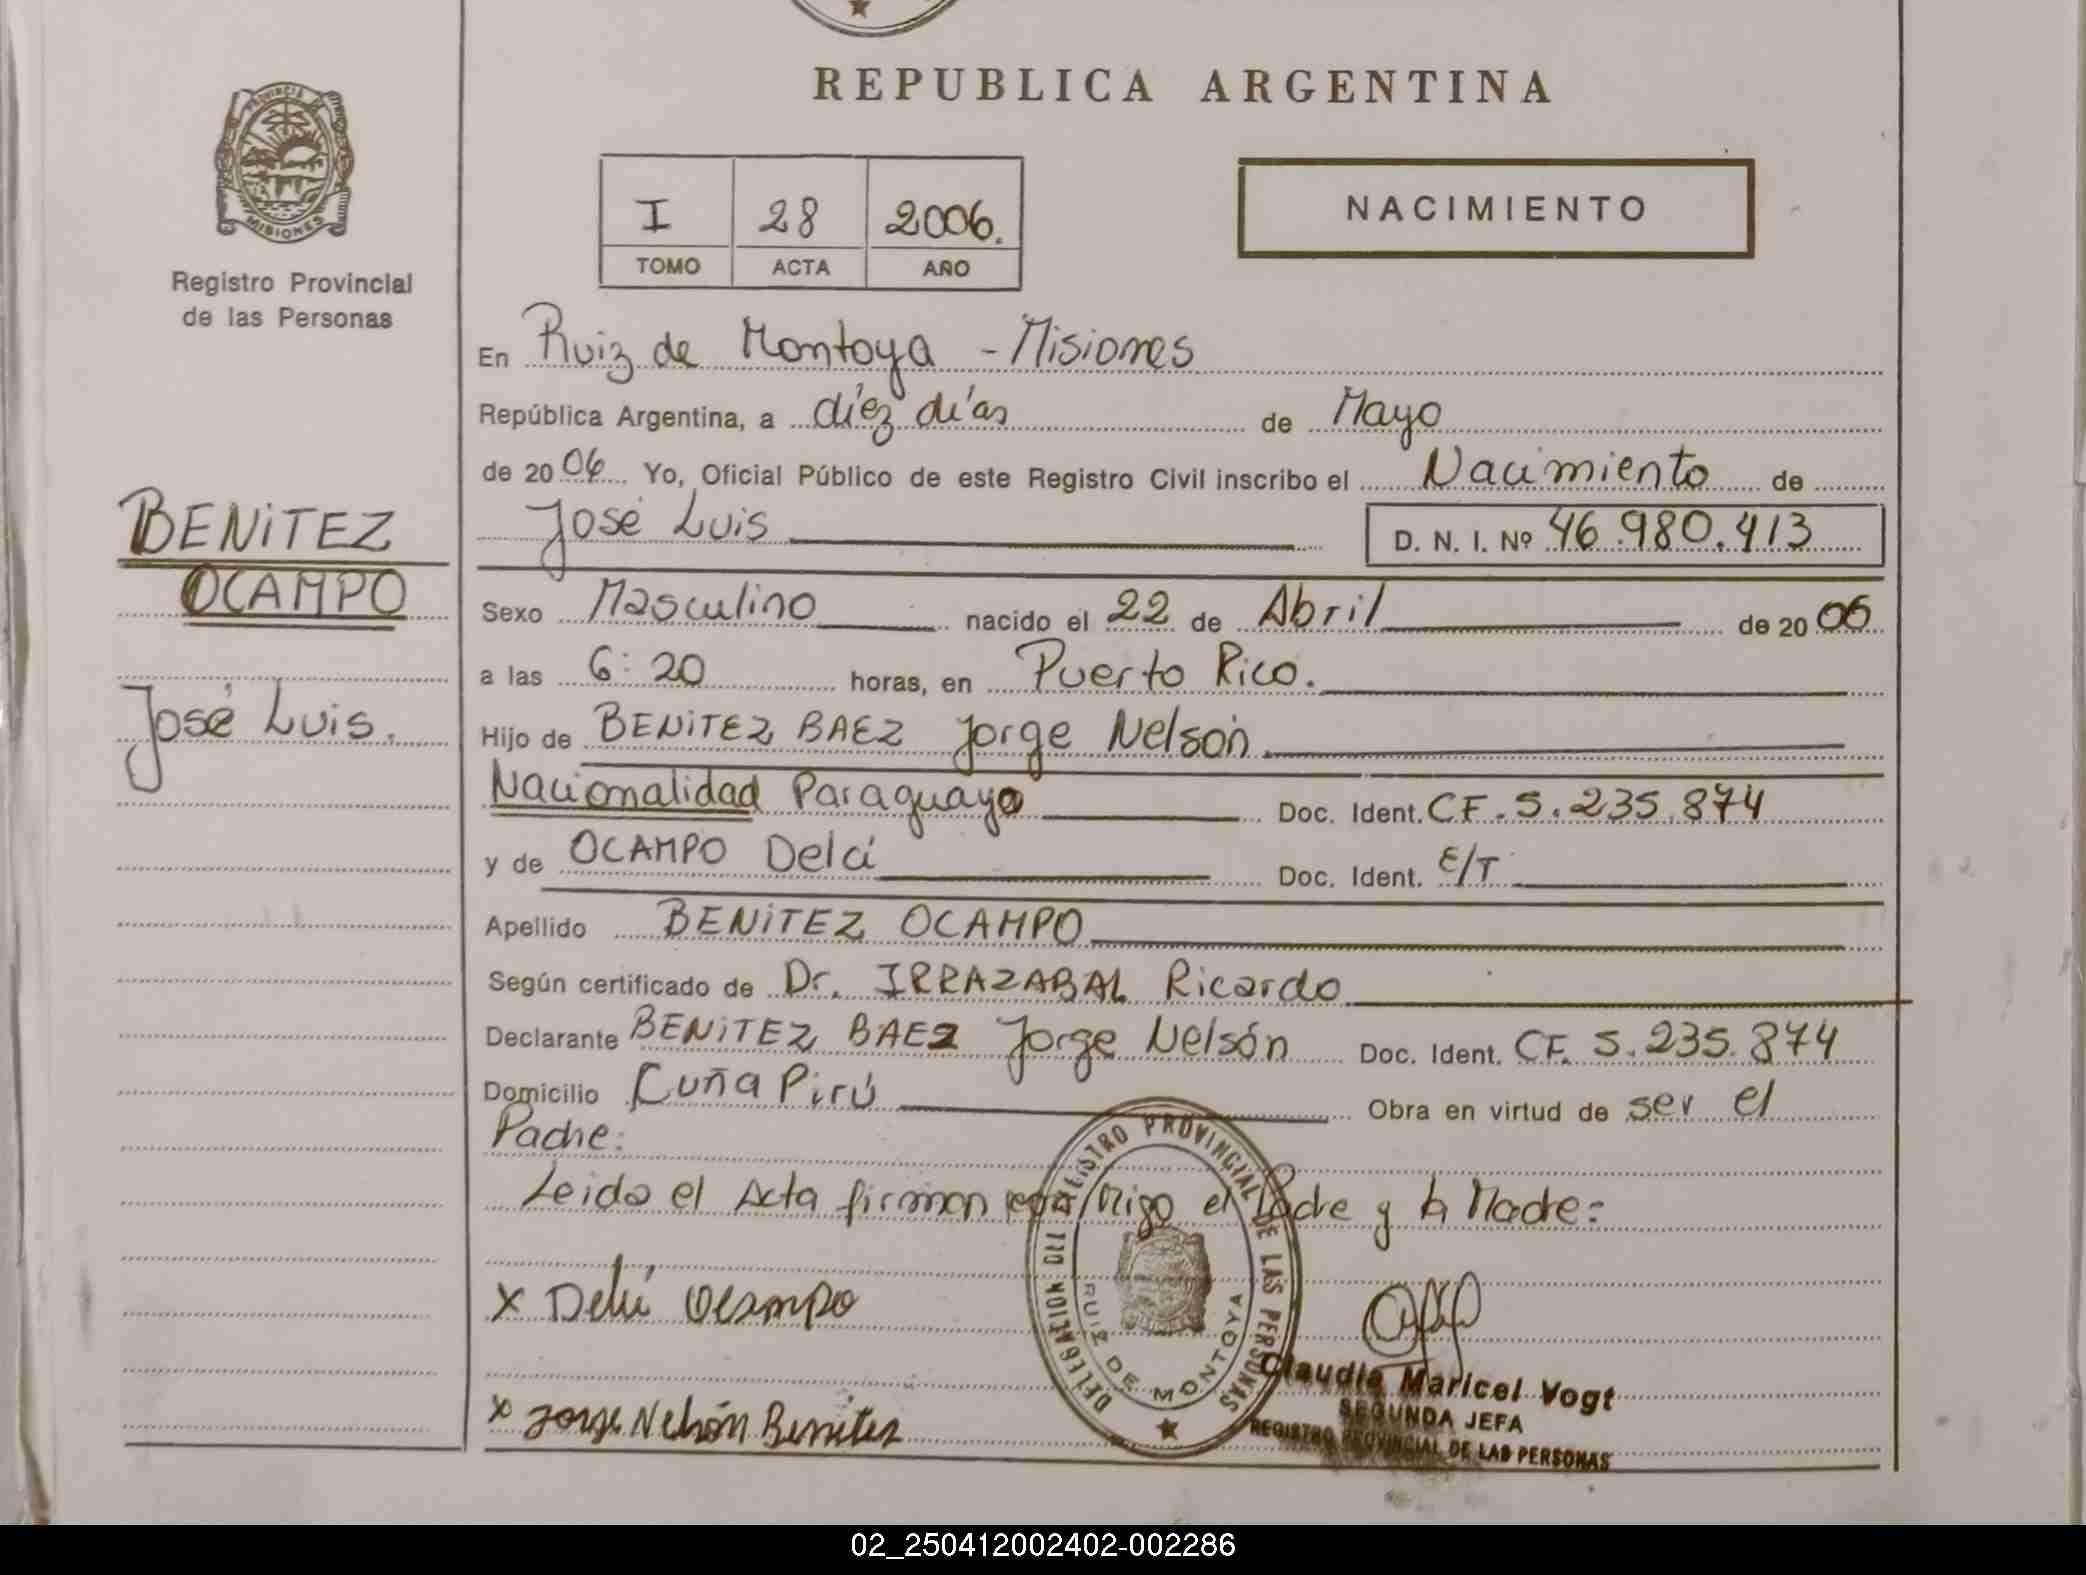 REPUBLICA ARGENTINA
PROVINCIA DE
MISIONES
Registro Provincial
de las Personas
I 28 2006.
TOMO ACTA AÑO
NACIMIENTO
BENiTEZ
OCAMPO
José Luis.
En Ruiz de Montoya - Misiones
República Argentina, a díez días de Mayo
de 2006 Yo, Oficial Público de este Registro Civil inscribo el Nacimiento de
José Luis D. N. I. Nº 46.980.413
Sexo Masculino nacido el 22 de Abril de 2006
a las 6:20 horas, en Puerto Rico.
Hijo de BENiTEZ BAEZ Jorge Nelsón
Nacionalidad Paraguaya Doc. Ident. CF. 5.235.874
y de OCAMPO Delcí Doc. Ident. E/T
Apellido BENiTEZ OCAMPO
Según certificado de Dr. IRRAZABAL Ricardo
Declarante BENiTEZ BAEZ Jorge Nelsón Doc. Ident. CF. 5.235.874
Domicilio Cuña Pirú Obra en virtud de ser el
Padre:
Leida el Acta firman el Padre y la Madre:
x Delcí Ocampo
x Jorge Nelsón Benitez
DELEGACION DEL REGISTRO PROVINCIAL DE LAS PERSONAS
RUIZ DE MONTOYA
Claudia Maricel Vogt
SEGUNDA JEFA
REGISTRO PROVINCIAL DE LAS PERSONAS
02_250412002402-002286